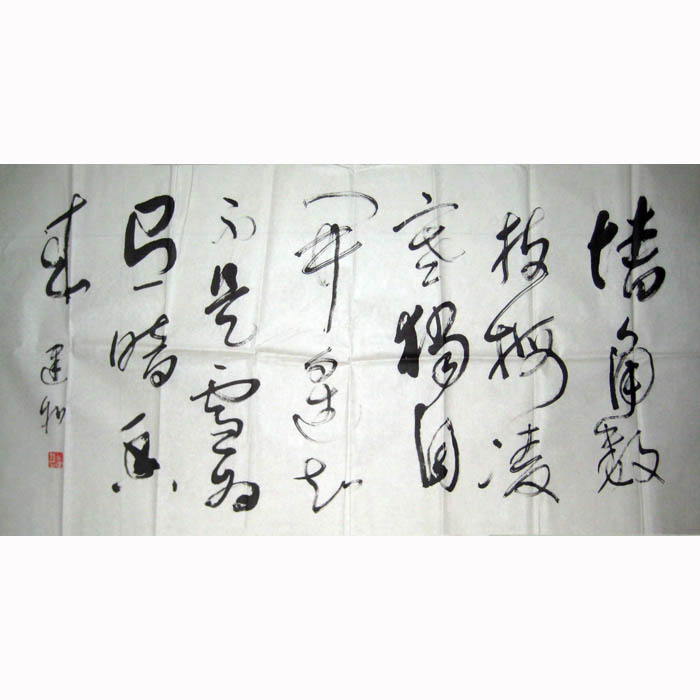 墙角数
枝梅凌
寒独自
开遥知
不是雪为
有暗香
来
建